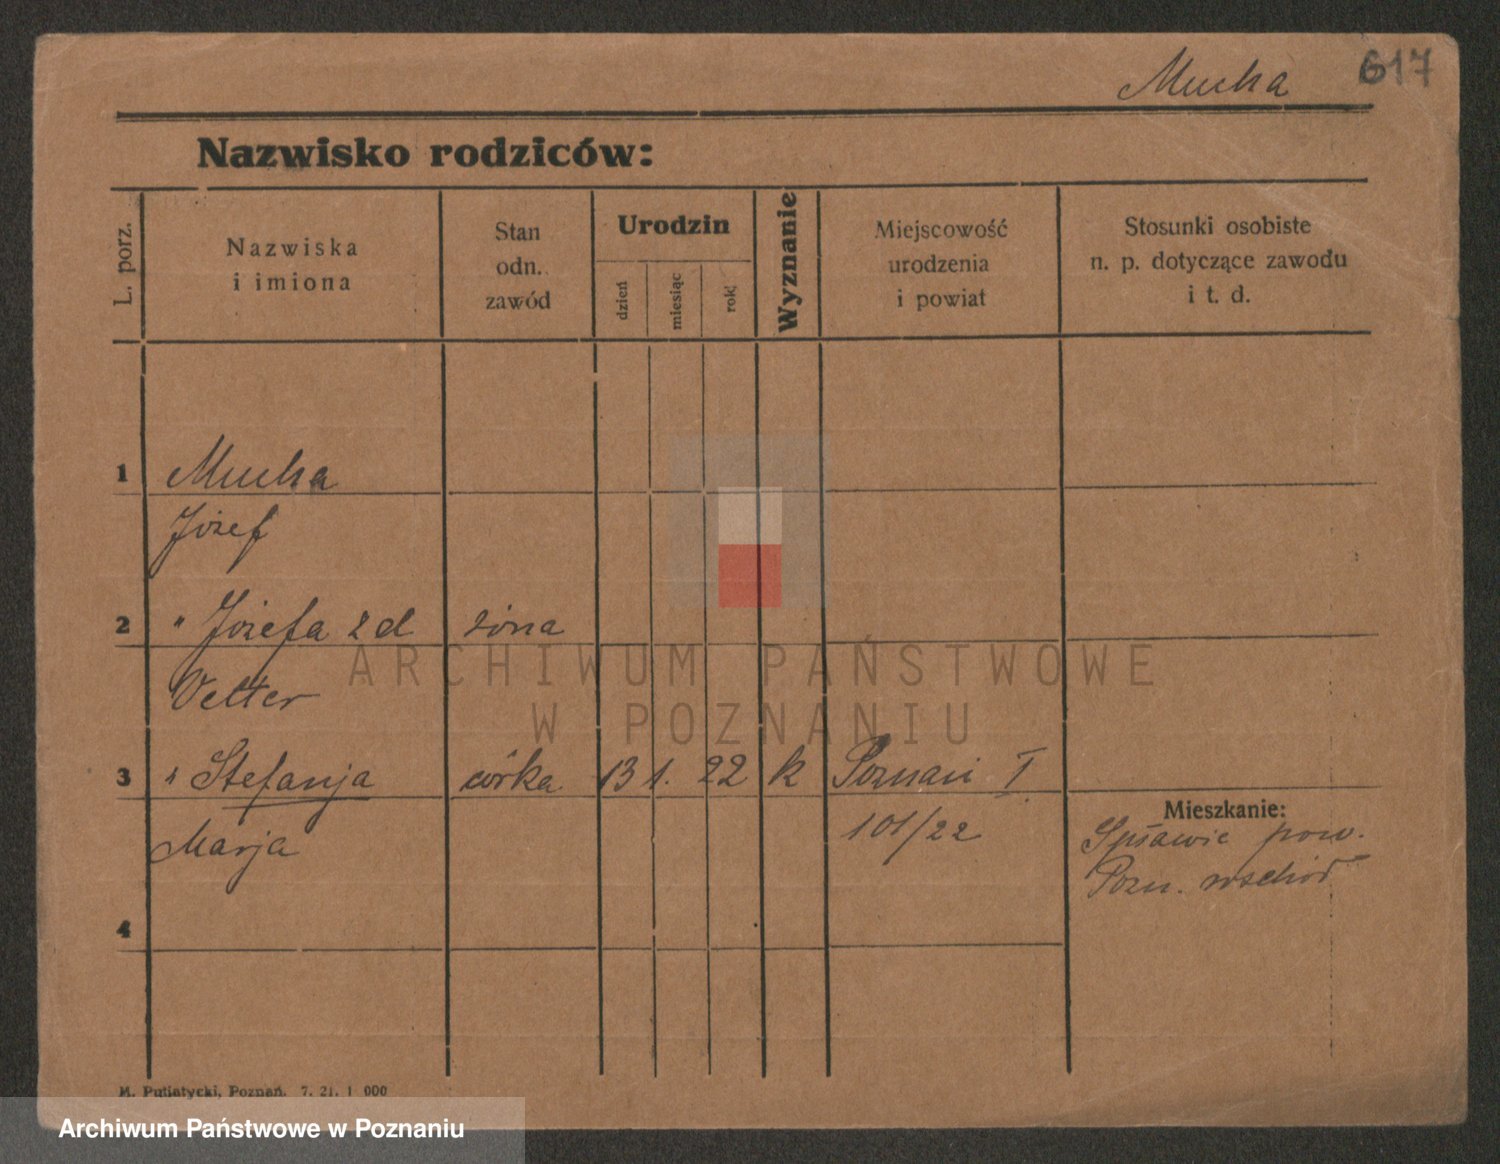 Mucha 617
Nazwisko rodziców:
L. porz.
Nazwiska
i imiona
Stan
odn.
zawód
Urodzin
dzień
miesiąc
rok
Wyznanie
Miejscowość
urodzenia
i powiat
Stosunki osobiste
n. p. dotyczące zawodu
i t. d.
1 Mucha
Józef
2 " Józefa z d żona
Vetter
3 " Stefanja córka 13 1. 22 k Poznań I
Marja 101/22
Mieszkanie:
Spławie pow.
Pozn. wschód
4
ARCHIWUM PAŃSTWOWE
W POZNANIU
M. Putiatycki, Poznań. 7. 21. 1 000
Archiwum Państwowe w Poznaniu